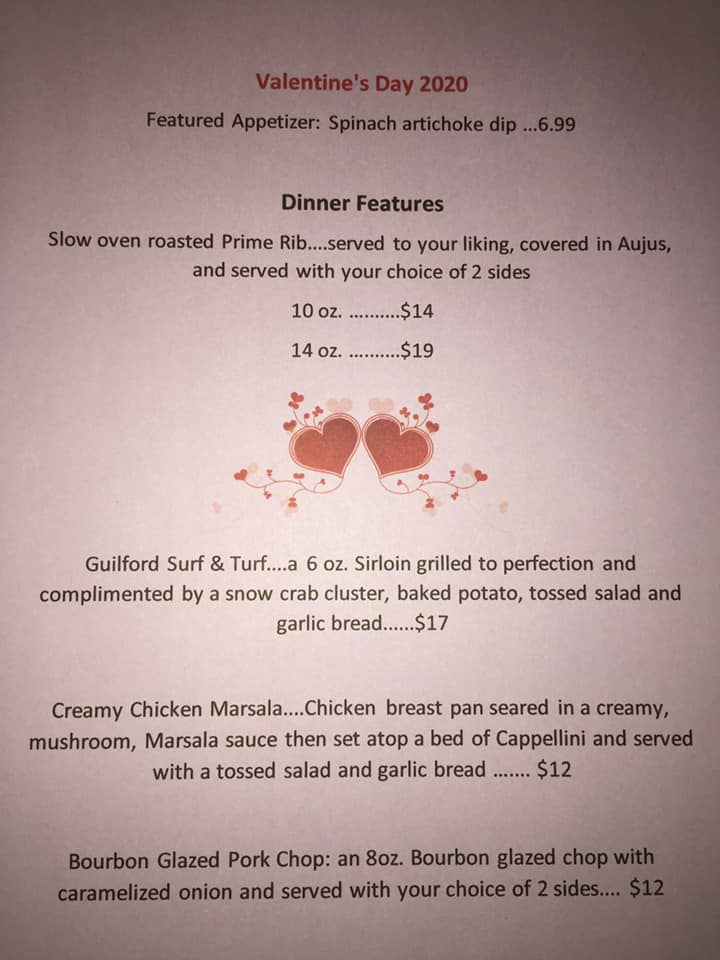 Valentine's Day 2020
Featured Appetizer: Spinach artichoke dip ...6.99
Dinner Features
Slow oven roasted Prime Rib....served to your liking, covered in Aujus,
and served with your choice of 2 sides
10 oz. ..........$14
14 oz. ..........$19
Guilford Surf & Turf....a 6 oz. Sirloin grilled to perfection and
complimented by a snow crab cluster, baked potato, tossed salad and
garlic bread......$17
Creamy Chicken Marsala....Chicken breast pan seared in a creamy,
mushroom, Marsala sauce then set atop a bed of Cappellini and served
with a tossed salad and garlic bread ....... $12
Bourbon Glazed Pork Chop: an 8oz. Bourbon glazed chop with
caramelized onion and served with your choice of 2 sides.... $12